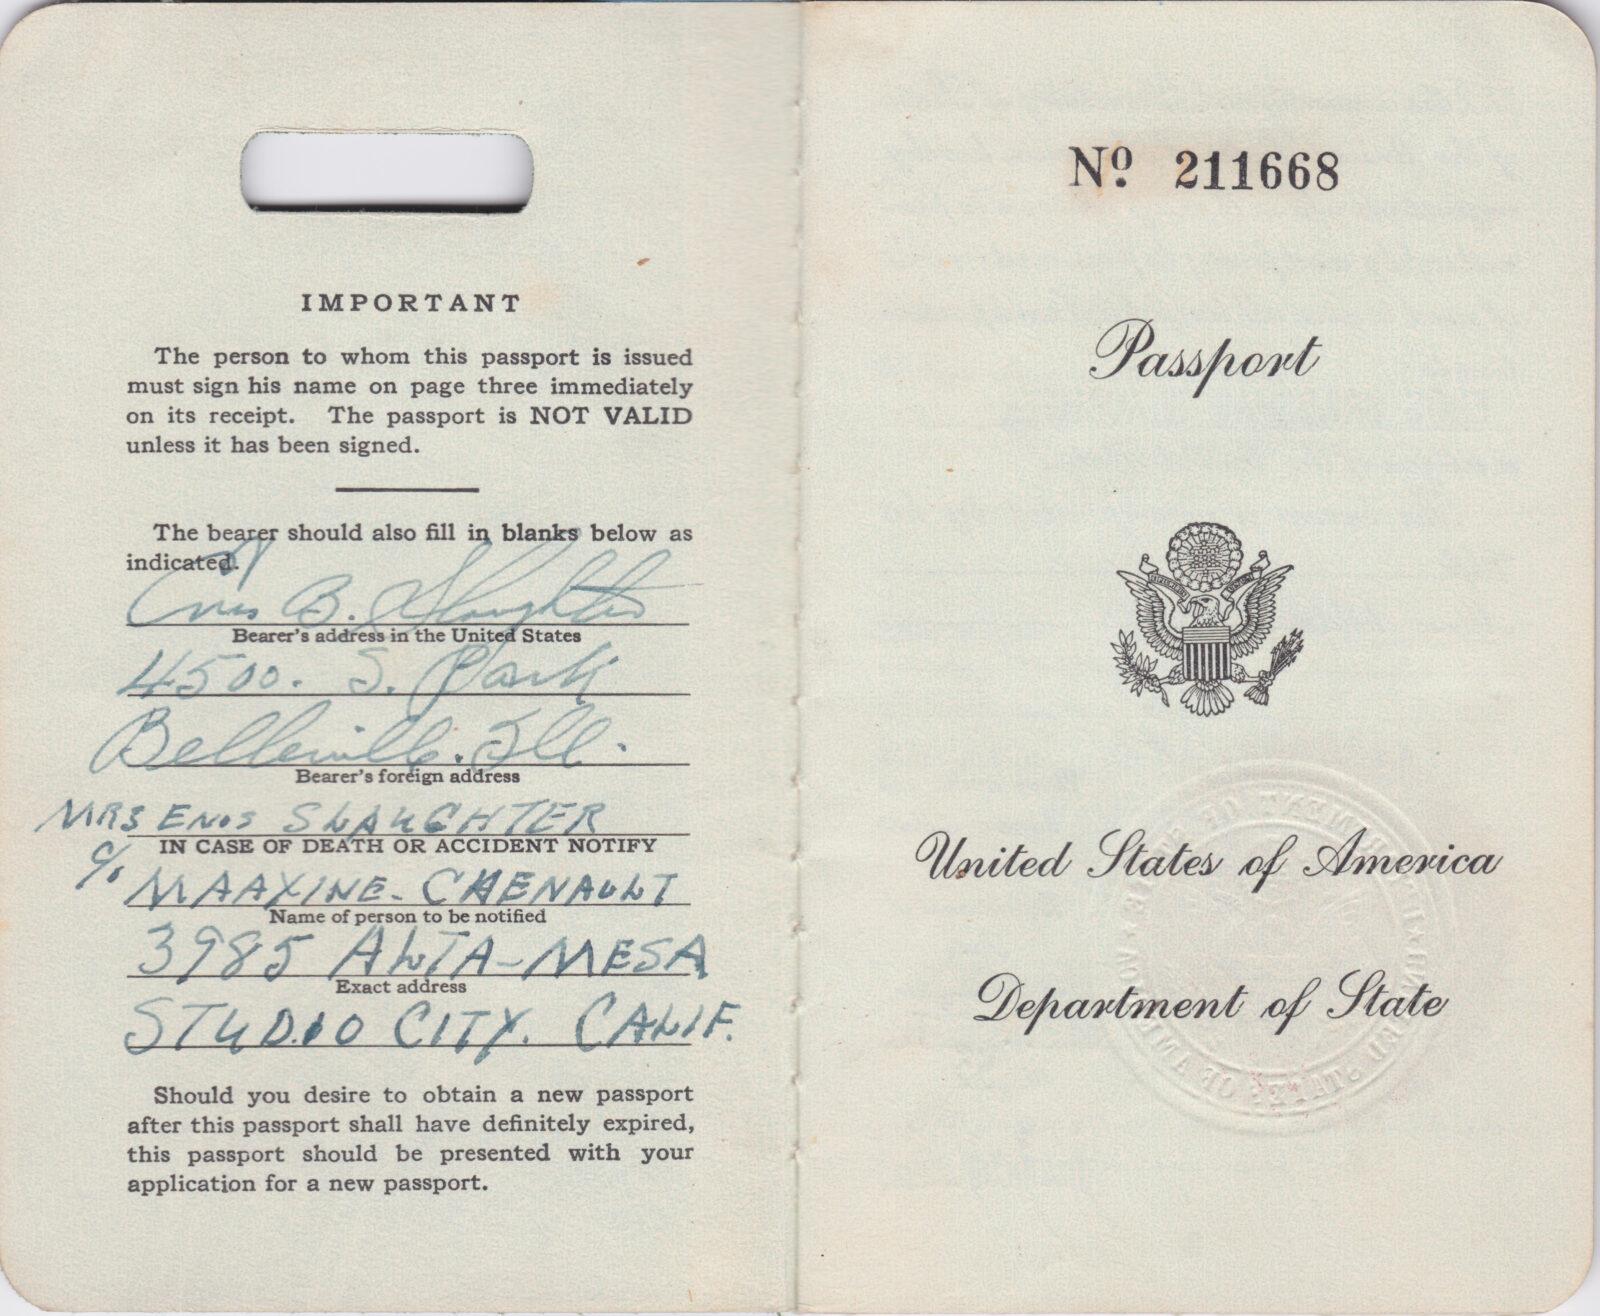 IMPORTANT
The person to whom this passport is issued
must sign his name on page three immediately
on its receipt. The passport is NOT VALID
unless it has been signed.
The bearer should also fill in blanks below as
indicated.
Enos B. Slaughter
Bearer's address in the United States
4500. S. Park
Belleville. Ill.
Bearer's foreign address
MRS ENOS SLAUGHTER
IN CASE OF DEATH OR ACCIDENT NOTIFY
C/o MAAXINE - CHENAULT
Name of person to be notified
3985 ALTA-MESA
Exact address
STUDIO CITY. CALIF.
Should you desire to obtain a new passport
after this passport shall have definitely expired,
this passport should be presented with your
application for a new passport.
Nº 211668
Passport
United States of America
Department of State